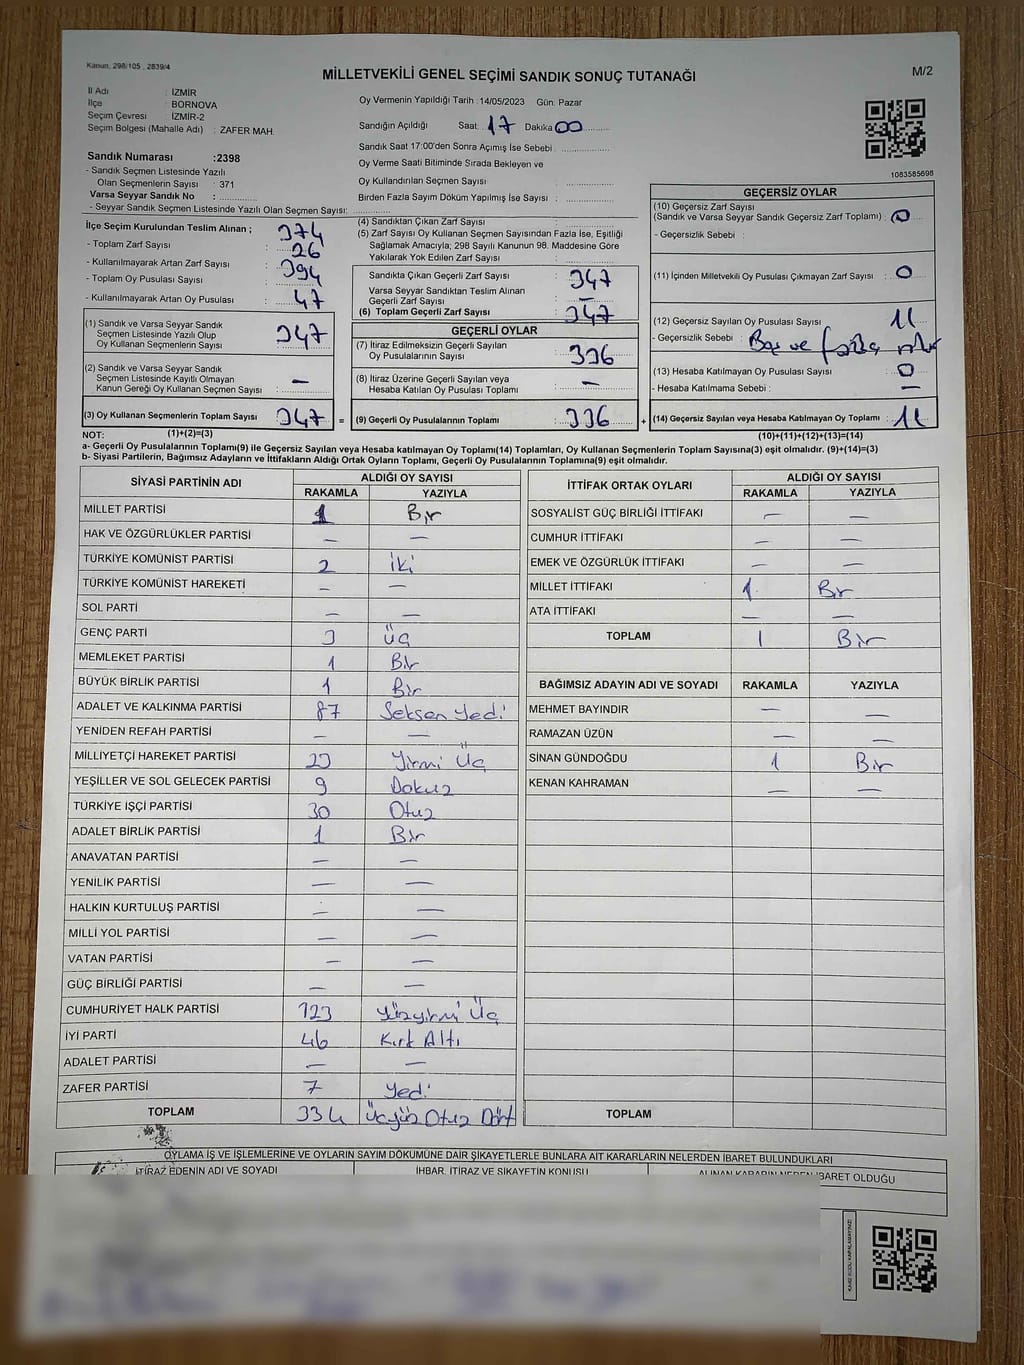 Kanun. 298/105 , 2839/4
MİLLETVEKİLİ GENEL SEÇİMİ SANDIK SONUÇ TUTANAĞI
M/2
İl Adı : İZMİR
İlçe : BORNOVA
Seçim Çevresi : İZMİR-2
Seçim Bölgesi (Mahalle Adı) : ZAFER MAH.
Sandık Numarası :2398
- Sandık Seçmen Listesinde Yazılı
Olan Seçmenlerin Sayısı : 371
Varsa Seyyar Sandık No :
- Seyyar Sandık Seçmen Listesinde Yazılı Olan Seçmen Sayısı:
Oy Vermenin Yapıldığı Tarih :14/05/2023 Gün. Pazar
Sandığın Açıldığı Saat: 17 Dakika 00
Sandık Saat 17:00'den Sonra Açımış İse Sebebi :
Oy Verme Saati Bitiminde Sırada Bekleyen ve
Oy Kullandırılan Seçmen Sayısı :
Birden Fazla Sayım Döküm Yapılmış İse Sayısı :
1083585698
İlçe Seçim Kurulundan Teslim Alınan ;
- Toplam Zarf Sayısı : 374
- Kullanılmayarak Artan Zarf Sayısı : 26
- Toplam Oy Pusulası Sayısı : 394
- Kullanılmayarak Artan Oy Pusulası : 47
(1) Sandık ve Varsa Seyyar Sandık
Seçmen Listesinde Yazılı Olup
Oy Kullanan Seçmenlerin Sayısı : 347
(2) Sandık ve Varsa Seyyar Sandık
Seçmen Listesinde Kayıtlı Olmayan
Kanun Gereği Oy Kullanan Seçmen Sayısı : —
(3) Oy Kullanan Seçmenlerin Toplam Sayısı : 347 =
(1)+(2)=(3)
(4) Sandıktan Çıkan Zarf Sayısı :
(5) Zarf Sayısı Oy Kullanan Seçmen Sayısından Fazla İse, Eşitliği
Sağlamak Amacıyla; 298 Sayılı Kanunun 98. Maddesine Göre
Yakılarak Yok Edilen Zarf Sayısı :
Sandıkta Çıkan Geçerli Zarf Sayısı : 347
Varsa Seyyar Sandıktan Teslim Alınan
Geçerli Zarf Sayısı : —
(6) Toplam Geçerli Zarf Sayısı : 347
GEÇERLİ OYLAR
(7) İtiraz Edilmeksizin Geçerli Sayılan
Oy Pusulalarının Sayısı : 336
(8) İtiraz Üzerine Geçerli Sayılan veya
Hesaba Katılan Oy Pusulası Sayısı : —
(9) Geçerli Oy Pusulalarının Toplamı : 336 +
GEÇERSİZ OYLAR
(10) Geçersiz Zarf Sayısı
(Sandık ve Varsa Seyyar Sandık Geçersiz Zarf Toplamı) : 0
- Geçersizlik Sebebi :
(11) İçinden Milletvekili Oy Pusulası Çıkmayan Zarf Sayısı : 0
(12) Geçersiz Sayılan Oy Pusulası Sayısı : 11
- Geçersizlik Sebebi : Boş ve fazla
(13) Hesaba Katılmayan Oy Pusulası Sayısı : 0
- Hesaba Katılmama Sebebi : —
(14) Geçersiz Sayılan veya Hesaba Katılmayan Oy Toplamı : 11
(10)+(11)+(12)+(13)=(14)
NOT:
a- Geçerli Oy Pusulalarının Toplamı(9) ile Geçersiz Sayılan veya Hesaba katılmayan Oy Toplamı(14) Toplamları, Oy Kullanan Seçmenlerin Toplam Sayısına(3) eşit olmalıdır. (9)+(14)=(3)
b- Siyasi Partilerin, Bağımsız Adayların ve İttifakların Aldığı Ortak Oyların Toplamı, Geçerli Oy Pusulalarının Toplamına(9) eşit olmalıdır.
SİYASİ PARTİNİN ADI ALDIĞI OY SAYISI
RAKAMLA YAZIYLA
MİLLET PARTİSİ 1 Bir
HAK VE ÖZGÜRLÜKLER PARTİSİ — —
TÜRKİYE KOMÜNİST PARTİSİ 2 İki
TÜRKİYE KOMÜNİST HAREKETİ — —
SOL PARTİ — —
GENÇ PARTİ 3 Üç
MEMLEKET PARTİSİ 1 Bir
BÜYÜK BİRLİK PARTİSİ 1 Bir
ADALET VE KALKINMA PARTİSİ 87 Seksen Yedi
YENİDEN REFAH PARTİSİ — —
MİLLİYETÇİ HAREKET PARTİSİ 23 Yirmi Üç
YEŞİLLER VE SOL GELECEK PARTİSİ 9 Dokuz
TÜRKİYE İŞÇİ PARTİSİ 30 Otuz
ADALET BİRLİK PARTİSİ 1 Bir
ANAVATAN PARTİSİ — —
YENİLİK PARTİSİ — —
HALKIN KURTULUŞ PARTİSİ — —
MİLLİ YOL PARTİSİ — —
VATAN PARTİSİ — —
GÜÇ BİRLİĞİ PARTİSİ — —
CUMHURİYET HALK PARTİSİ 123 Yüzyirmi Üç
İYİ PARTİ 46 Kırk Altı
ADALET PARTİSİ — —
ZAFER PARTİSİ 7 Yedi
TOPLAM 334 Üçyüz Otuz Dört
İTTİFAK ORTAK OYLARI ALDIĞI OY SAYISI
RAKAMLA YAZIYLA
SOSYALİST GÜÇ BİRLİĞİ İTTİFAKI — —
CUMHUR İTTİFAKI — —
EMEK VE ÖZGÜRLÜK İTTİFAKI — —
MİLLET İTTİFAKI 1 Bir
ATA İTTİFAKI — —
TOPLAM 1 Bir
BAĞIMSIZ ADAYIN ADI VE SOYADI RAKAMLA YAZIYLA
MEHMET BAYINDIR — —
RAMAZAN ÜZÜN — —
SİNAN GÜNDOĞDU 1 Bir
KENAN KAHRAMAN — —
TOPLAM
OYLAMA İŞ VE İŞLEMLERİNE VE OYLARIN SAYIM DÖKÜMÜNE DAİR ŞİKAYETLERLE BUNLARA AİT KARARLARIN NELERDEN İBARET BULUNDUKLARI
İTİRAZ EDENİN ADI VE SOYADI İHBAR, İTİRAZ VE ŞİKAYETİN KONUSU ALINAN KARARIN NEDEN İBARET OLDUĞU